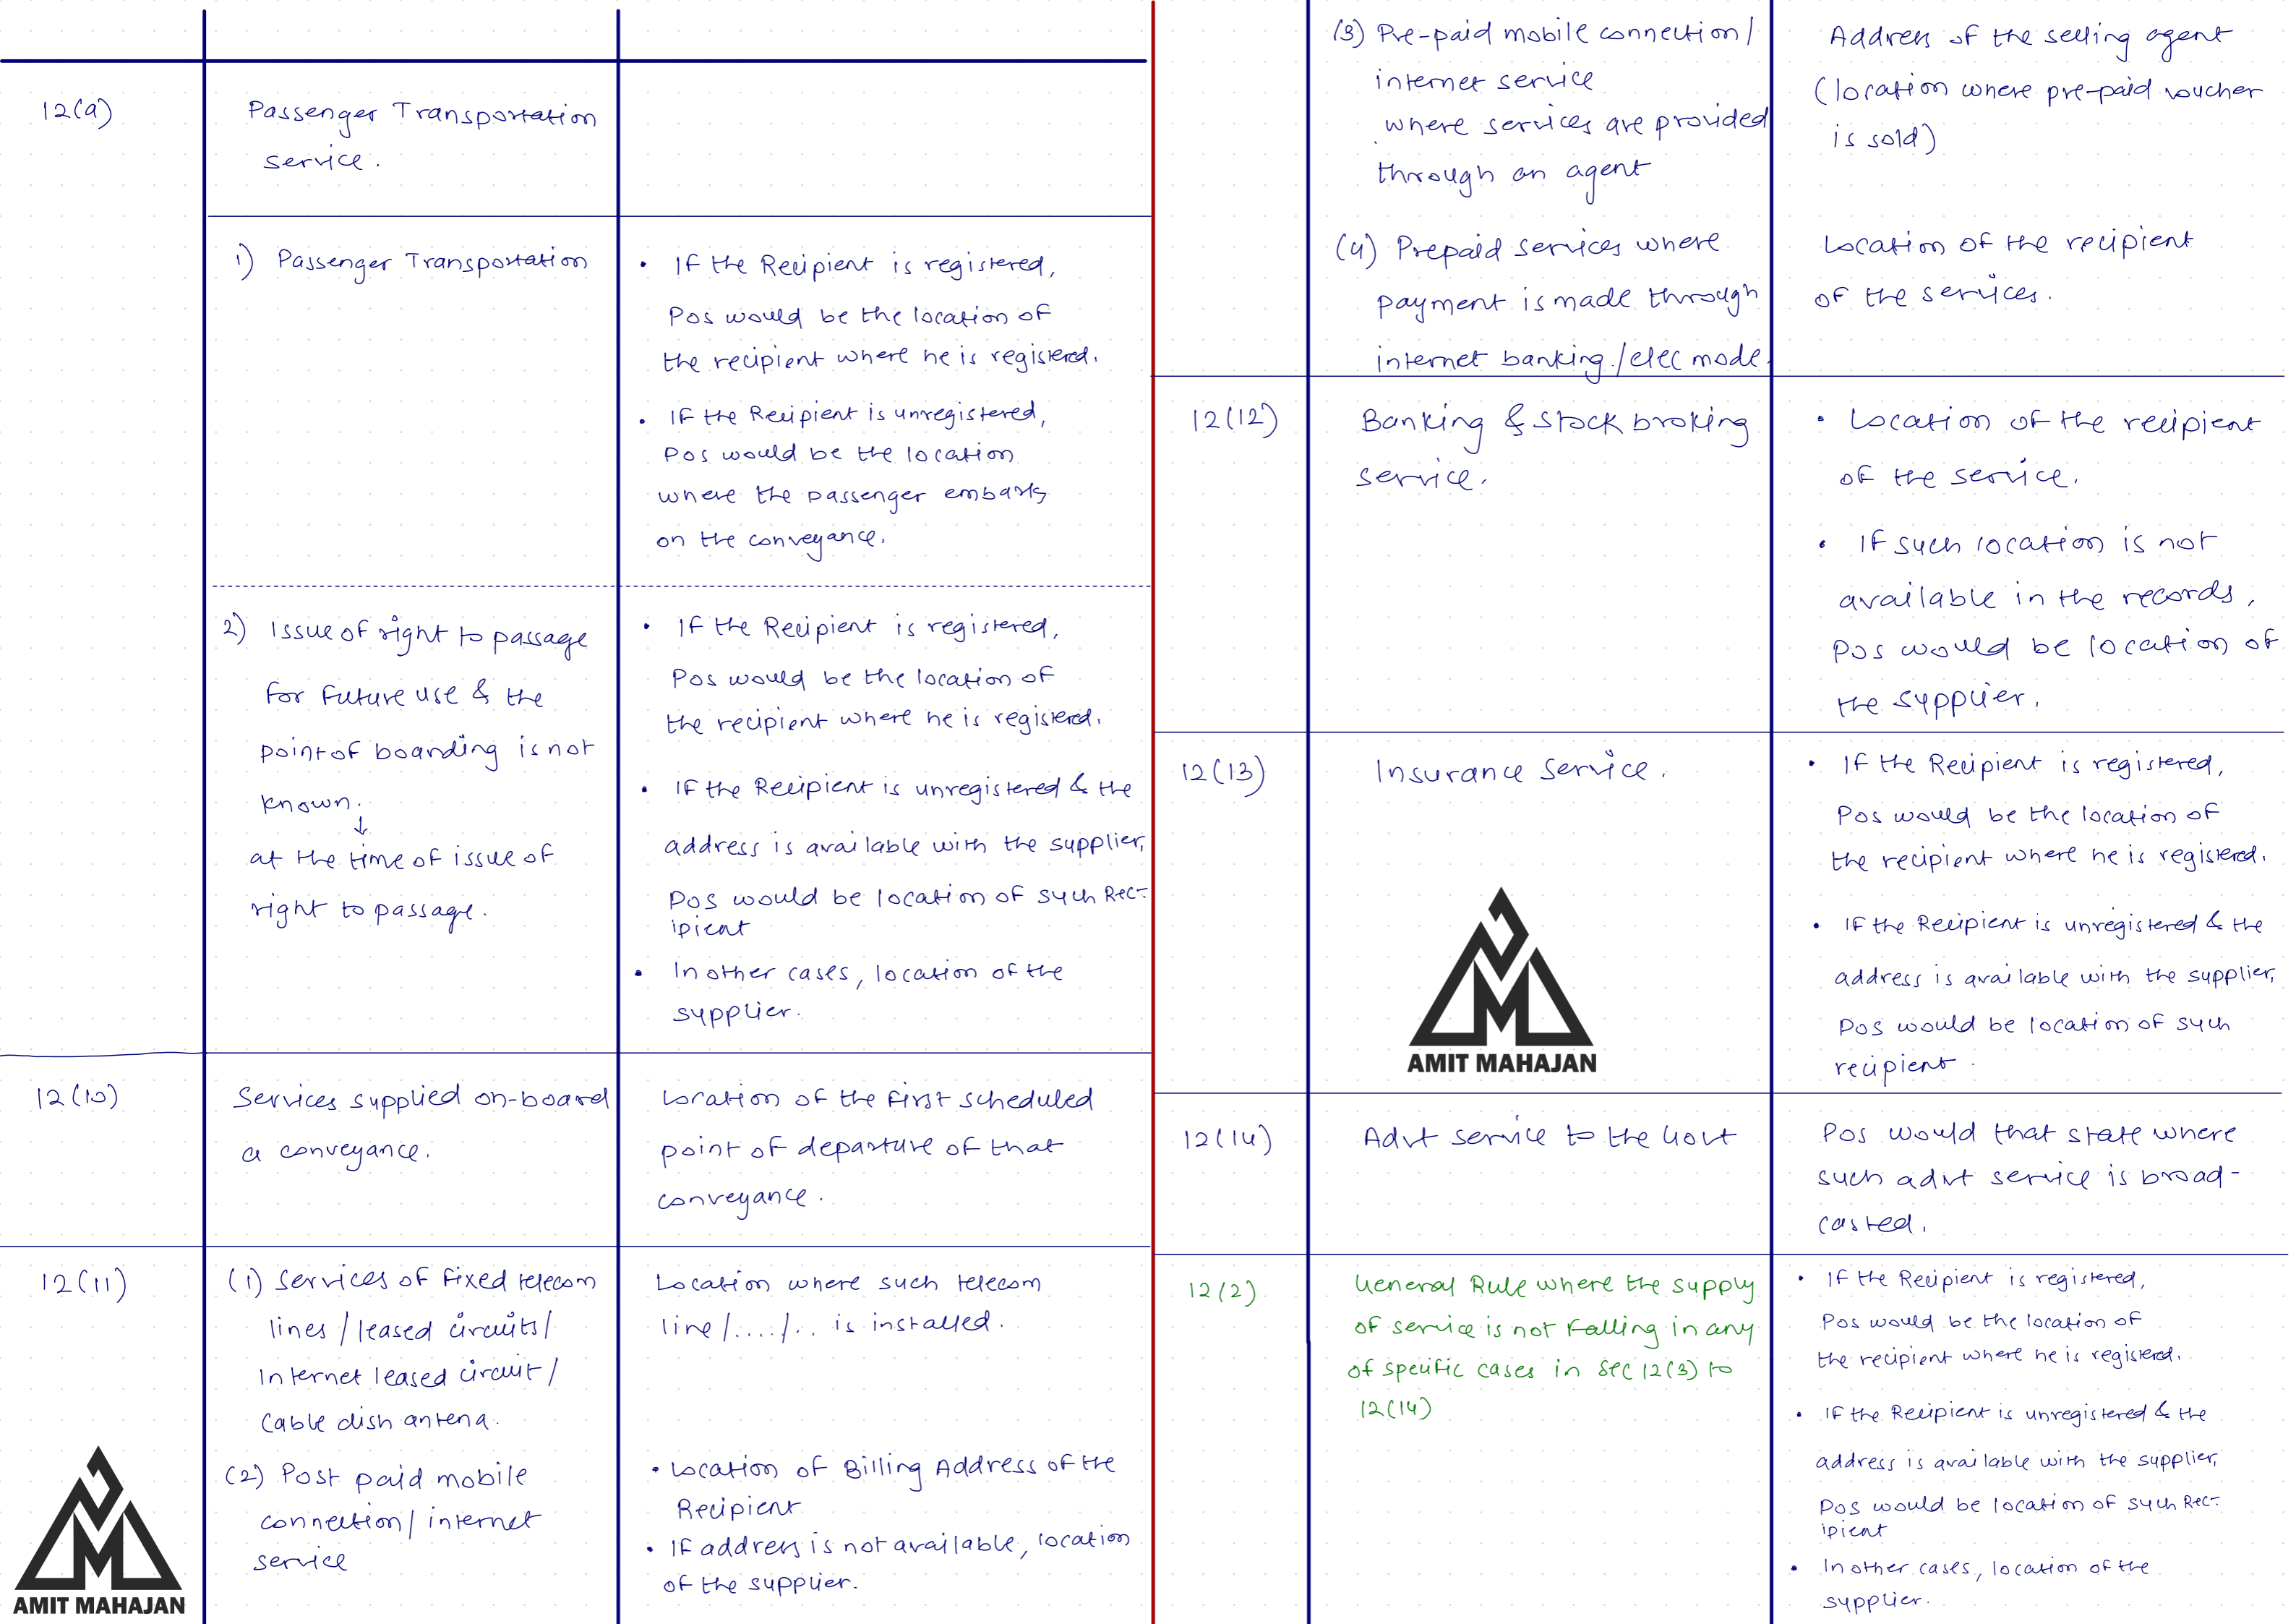 12(9)
Passenger Transportation
service.
1) Passenger Transportation
• If the Recipient is registered,
Pos would be the location of
the recipient where he is registered.
• If the Recipient is unregistered,
Pos would be the location
where the passenger embarks
on the conveyance.
2) Issue of right to passage
for future use & the
point of boarding is not
known.
↓
at the time of issue of
right to passage.
• If the Recipient is registered,
Pos would be the location of
the recipient where he is registered.
• If the Recipient is unregistered & the
address is available with the supplier,
Pos would be location of such Rec-
ipient
• In other cases, location of the
supplier.
12(10)
Services supplied on-board
a conveyance.
Location of the first scheduled
point of departure of that
conveyance.
12(11)
(1) Services of fixed telecom
lines / leased circuits/
Internet leased circuit /
Cable dish antena.
Location where such telecom
line/..../.. is installed.
(2) Post paid mobile
connection/ internet
service
• Location of Billing Address of the
Recipient
• If address is not available, location
of the supplier.
AMIT MAHAJAN
(3) Pre-paid mobile connection /
internet service
where services are provided
through an agent
Address of the selling agent
(location where pre-paid voucher
is sold)
(4) Prepaid services where
payment is made through
internet banking /elec mode.
Location of the recipient
of the services.
12(12)
Banking & stock broking
service.
• Location of the recipient
of the service.
• If such location is not
available in the records,
Pos would be location of
the supplier.
12(13)
Insurance Service.
• If the Recipient is registered,
Pos would be the location of
the recipient where he is registered.
• If the Recipient is unregistered & the
address is available with the supplier,
Pos would be location of such
recipient.
AMIT MAHAJAN
12(14)
Advt service to the Govt
Pos would that state where
such advt service is broad-
casted.
12(2)
General Rule where the supply
of service is not falling in any
of specific cases in sec 12(3) to
12(14)
• If the Recipient is registered,
Pos would be the location of
the recipient where he is registered.
• If the Recipient is unregistered & the
address is available with the supplier,
Pos would be location of such Rec-
ipient
• In other cases, location of the
supplier.